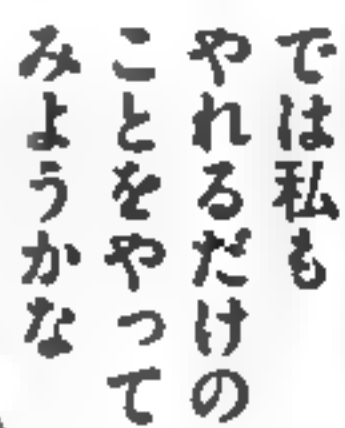 では私も
やれるだけの
ことをやって
みようかな